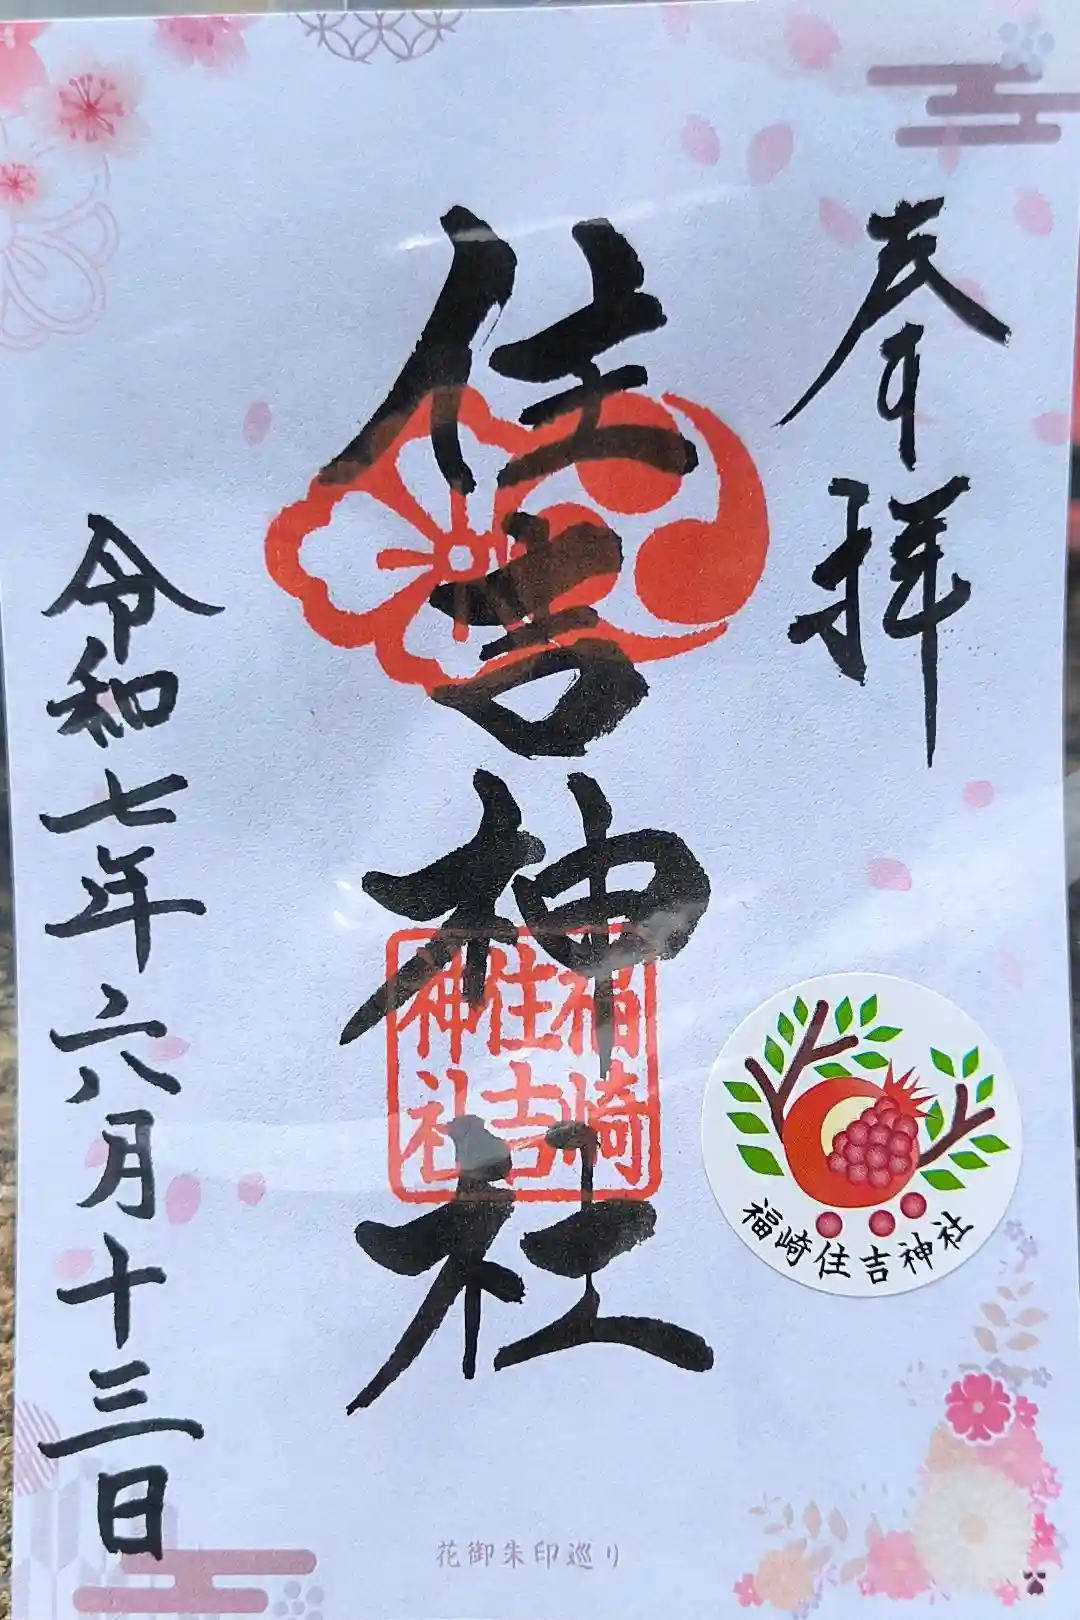 奉拝
住吉神社
福崎
住吉
神社
令和七年六月十三日
福崎住吉神社
花御朱印巡り